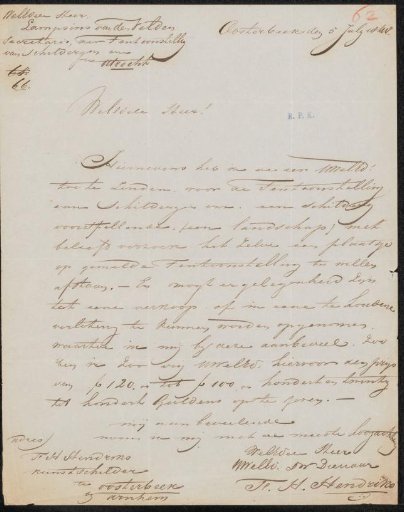 WelEdele Heer
Lampsins van der Velden
Secretaris, der Tentoonstelling
van Schilderijen enz
Utrecht
62
Oosterbeek den 5 July 1840.
66.
WelEdele Heer!
R.P.K.
Hiernevens heb ik de eer UWelEd:
toe te zenden voor de Tentoonstelling
van Schilderijen enz. een Schilderij
voorstellende, een landschap, met
beleefd verzoek het zelve een plaatsje
op gemelde Tentoonstelling te willen
afstaan. — En mogt er gelegenheid zijn
het eene verkoop of in eene te houdene
verloting te kunnen worden opgenomen,
waartoe ik mij bij deze aanbeveel. Zoo
ben ik zoo vrij UWelEd. hiervoor den prys
van ƒ 120,= tot ƒ 100,= honderd en twintig
tot honderd Guldens op te geven. —
mij aanbevelende
noem ik mij met de meeste hoogachting
WelEdele Heer
UWelEd. Dw Dienaar
F. H. Hendriks
adres
F. H. Hendriks
kunstschilder
te oosterbeek
bij arnhem